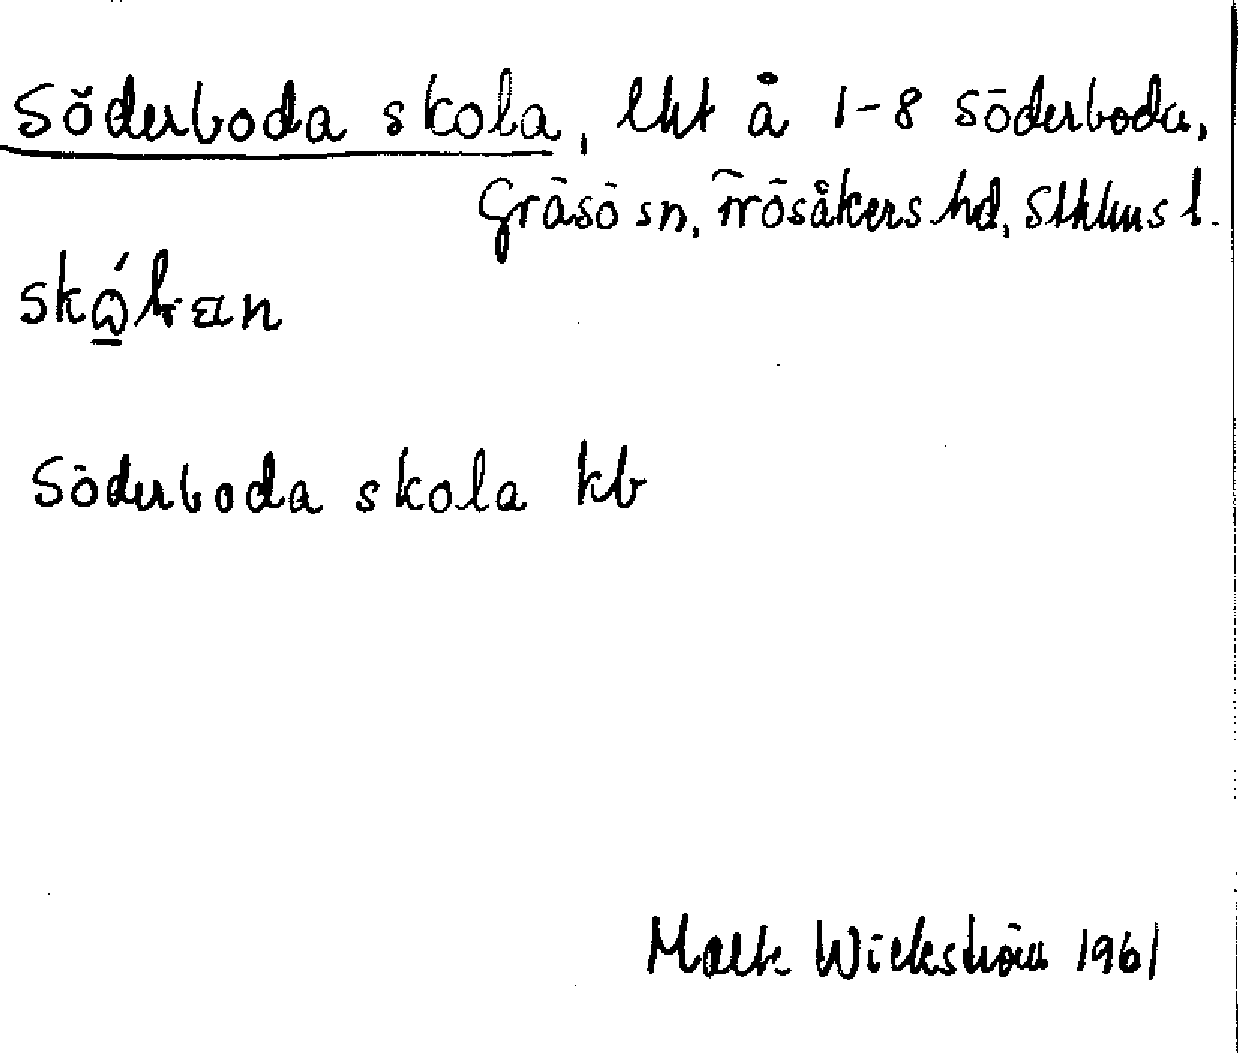 Söderboda skola, lht å 1-8 Söderboda,
Gräsö sn, Frösåkers hd, Sthlms l.
Söderboda skola kb
Wickström 1961